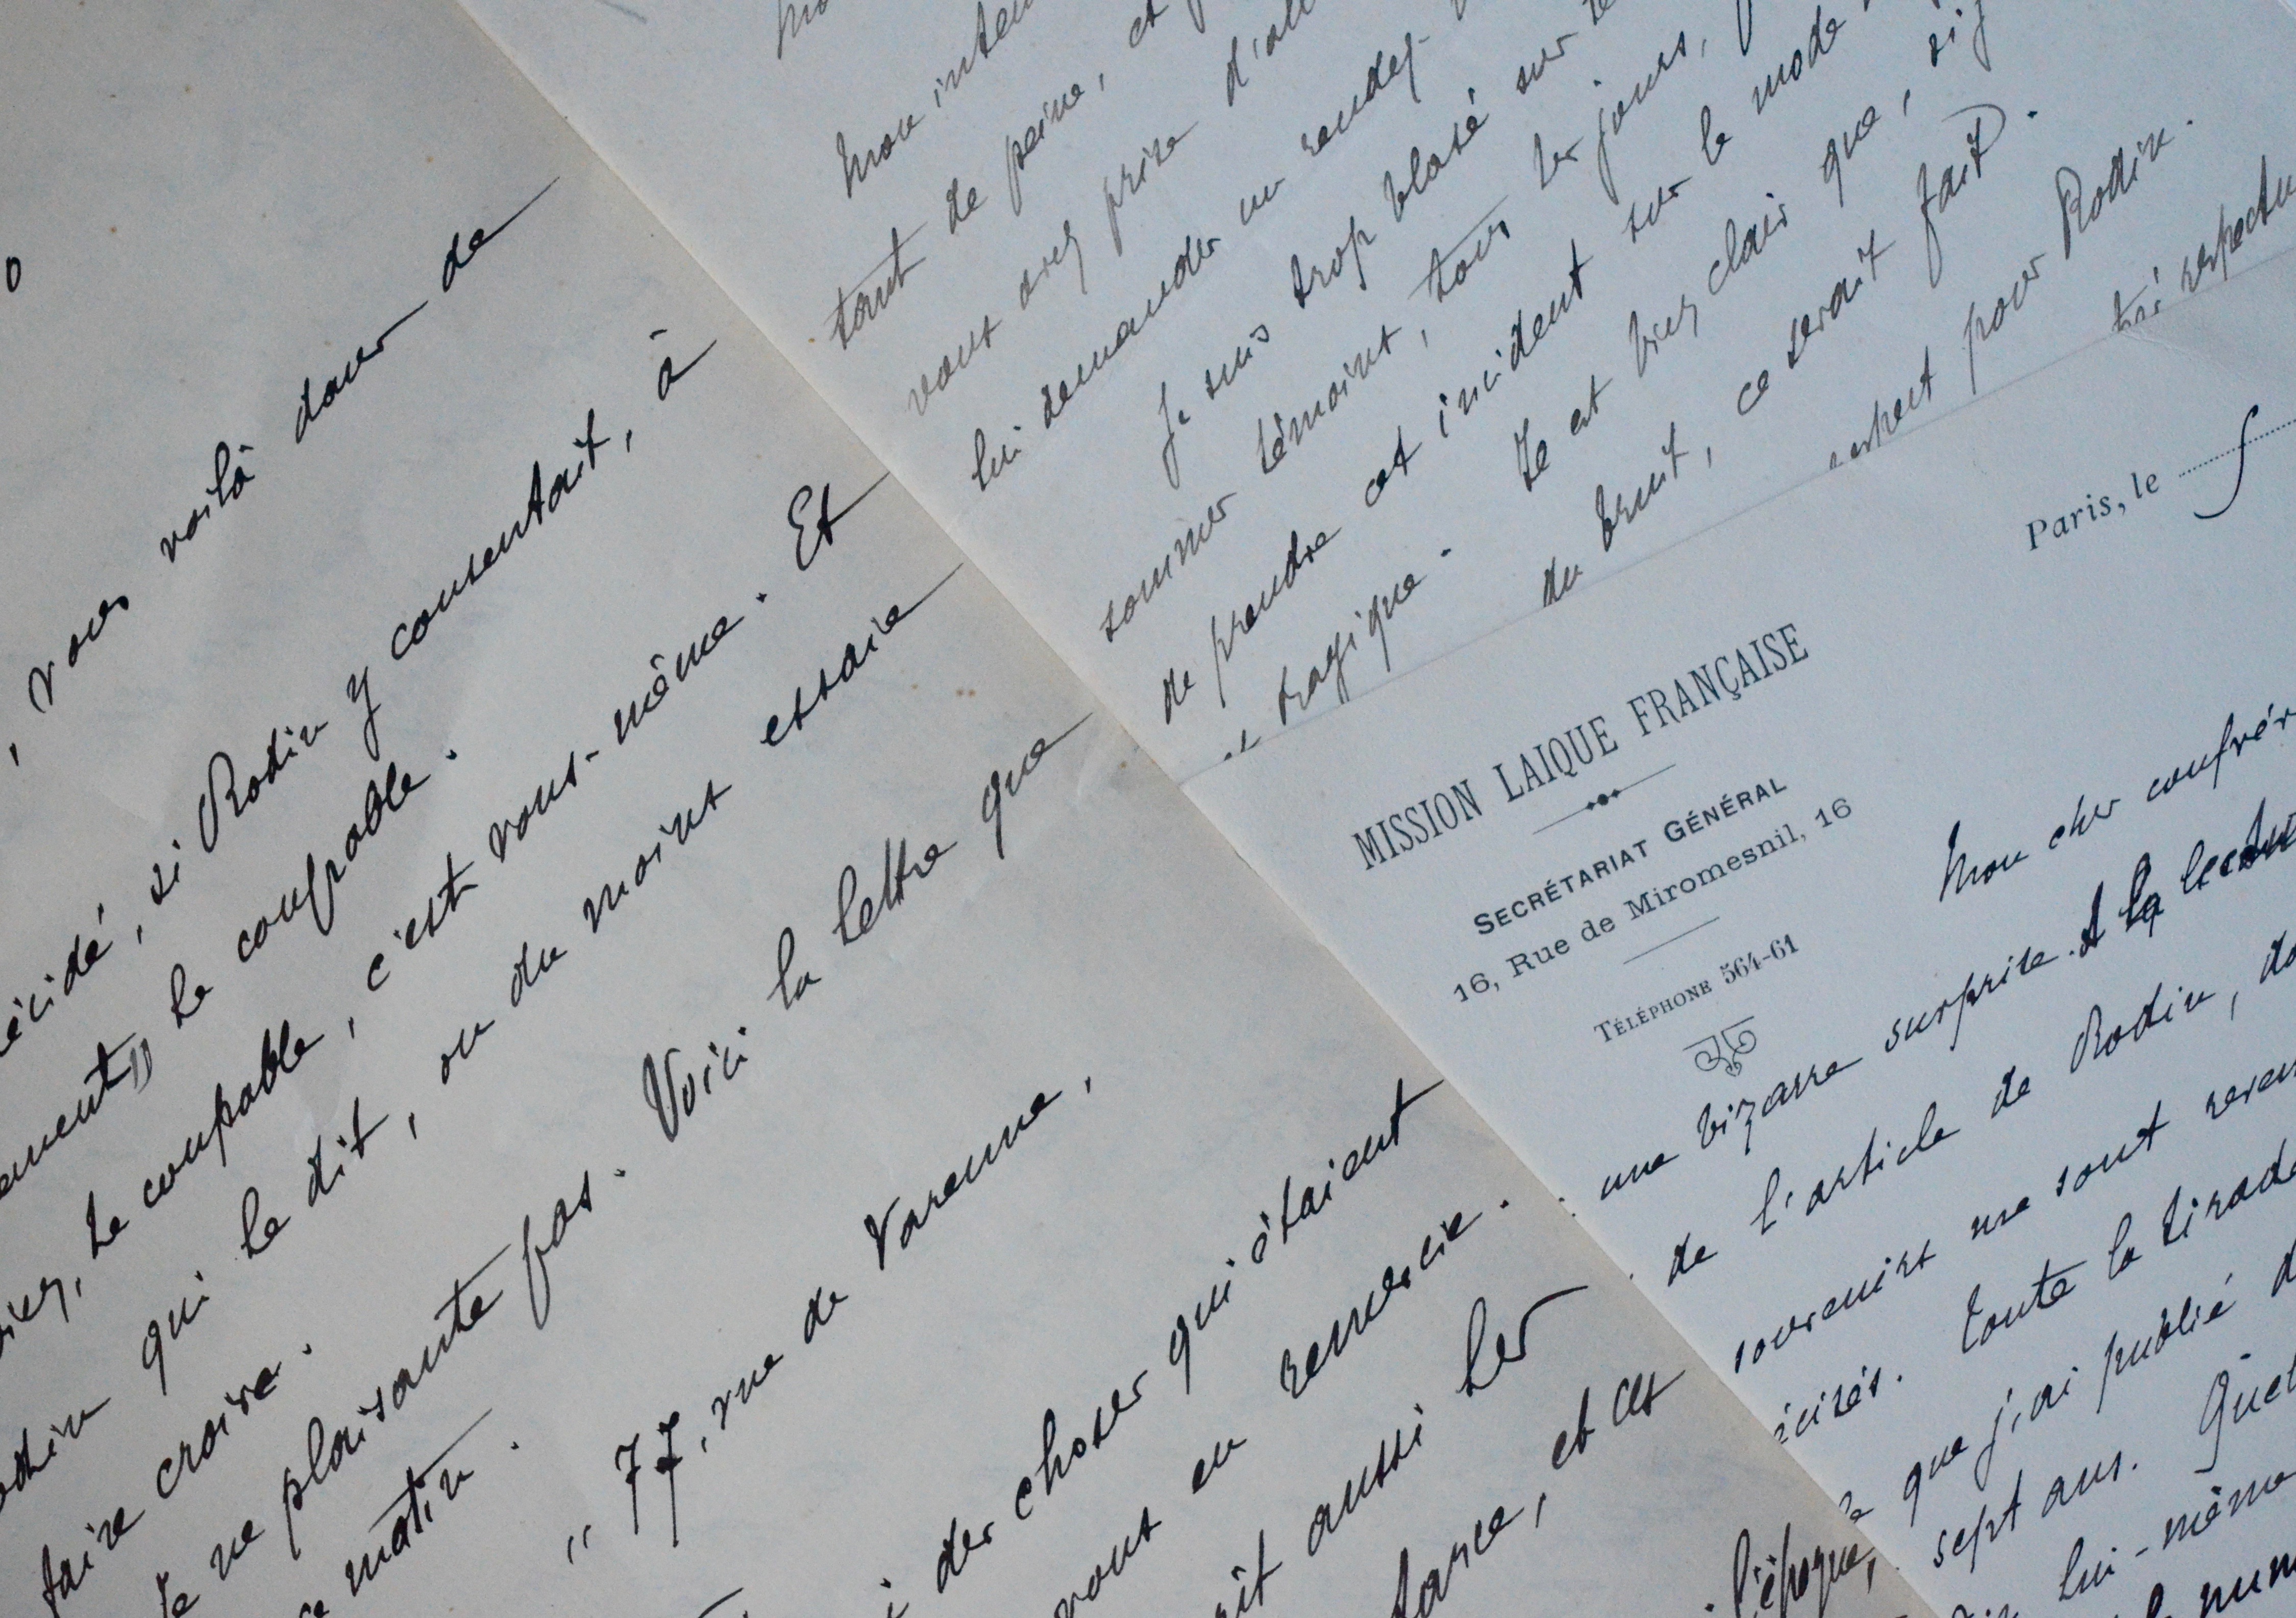 , vous voilà dans de
écidé, si Rodin y consentait, à
le coupable.
le coupable, c'est vous-même. Et
qui le dit, ou du moins essaie
faire croire.
ne plaisante pas. Voici la lettre que
matin.
" 77, rue de Varenne,
des choses qui étaient
vous en remercie.
aussi les
et ces
tout de peine, et
vous avez prise d'all
lui demander un rendez-
Je suis trop blasé sur le
témoins, tous les jours,
de prendre cet incident sur le mode
tragique. Il est bien clair que, si j
du bruit, ce serait fait.
pour Rodin.
très respectu
Paris, le
MISSION LAIQUE FRANÇAISE
SECRÉTARIAT GÉNÉRAL
16, Rue de Miromesnil, 16
TÉLÉPHONE 564-61
Mon cher confrèr
une bizarre surprise. A la lectu
de l'article de Rodin, de
souvenirs me sont reven
écisés. Toute la tirade
que j'ai publié d
sept ans. Quel
lui-même
l'époque,